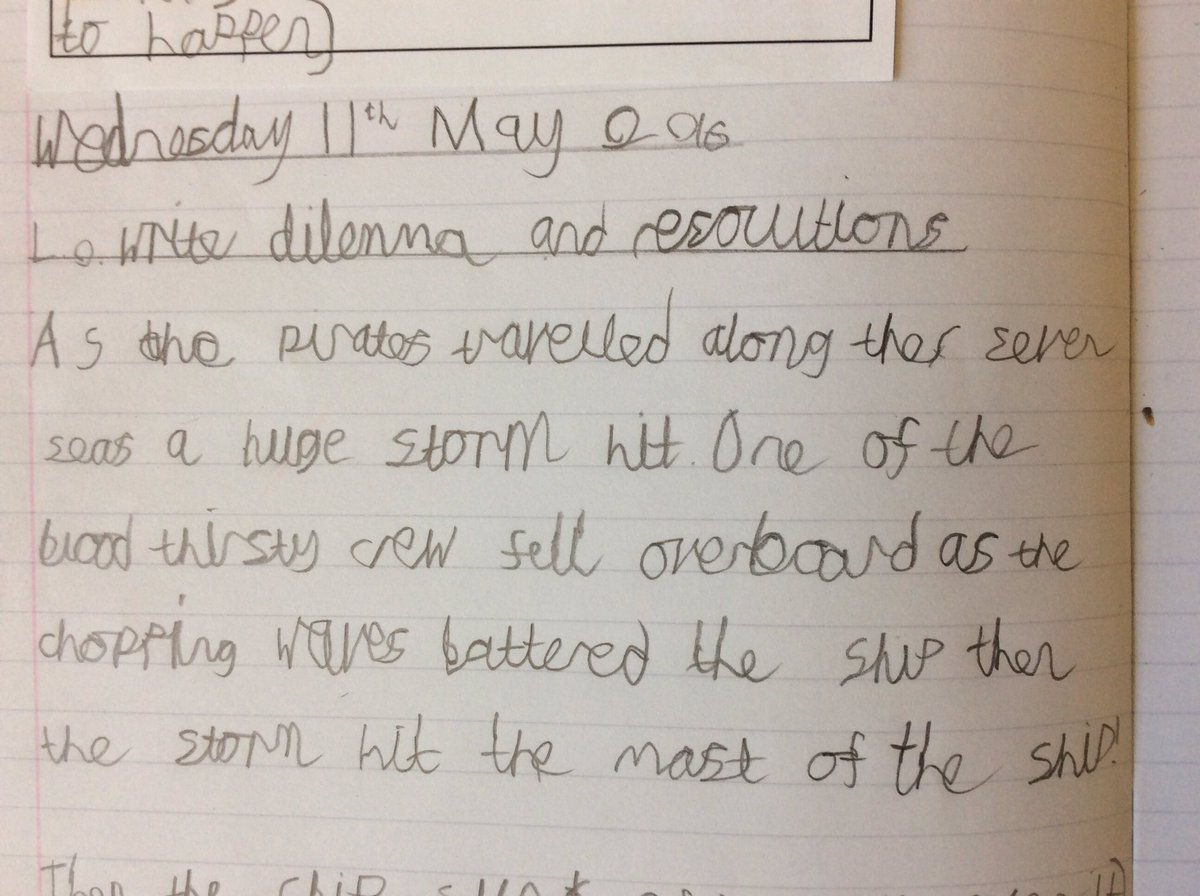 to happen
Wednesday 11th May 2016
L.o. write dilemma and resoulutions
As the pirates travelled along ther seven
seas a huge storm hit. One of the
blood thirsty crew fell overboard as the
chopping waves battered the ship then
the storm hit the mast of the ship!
Then the ship